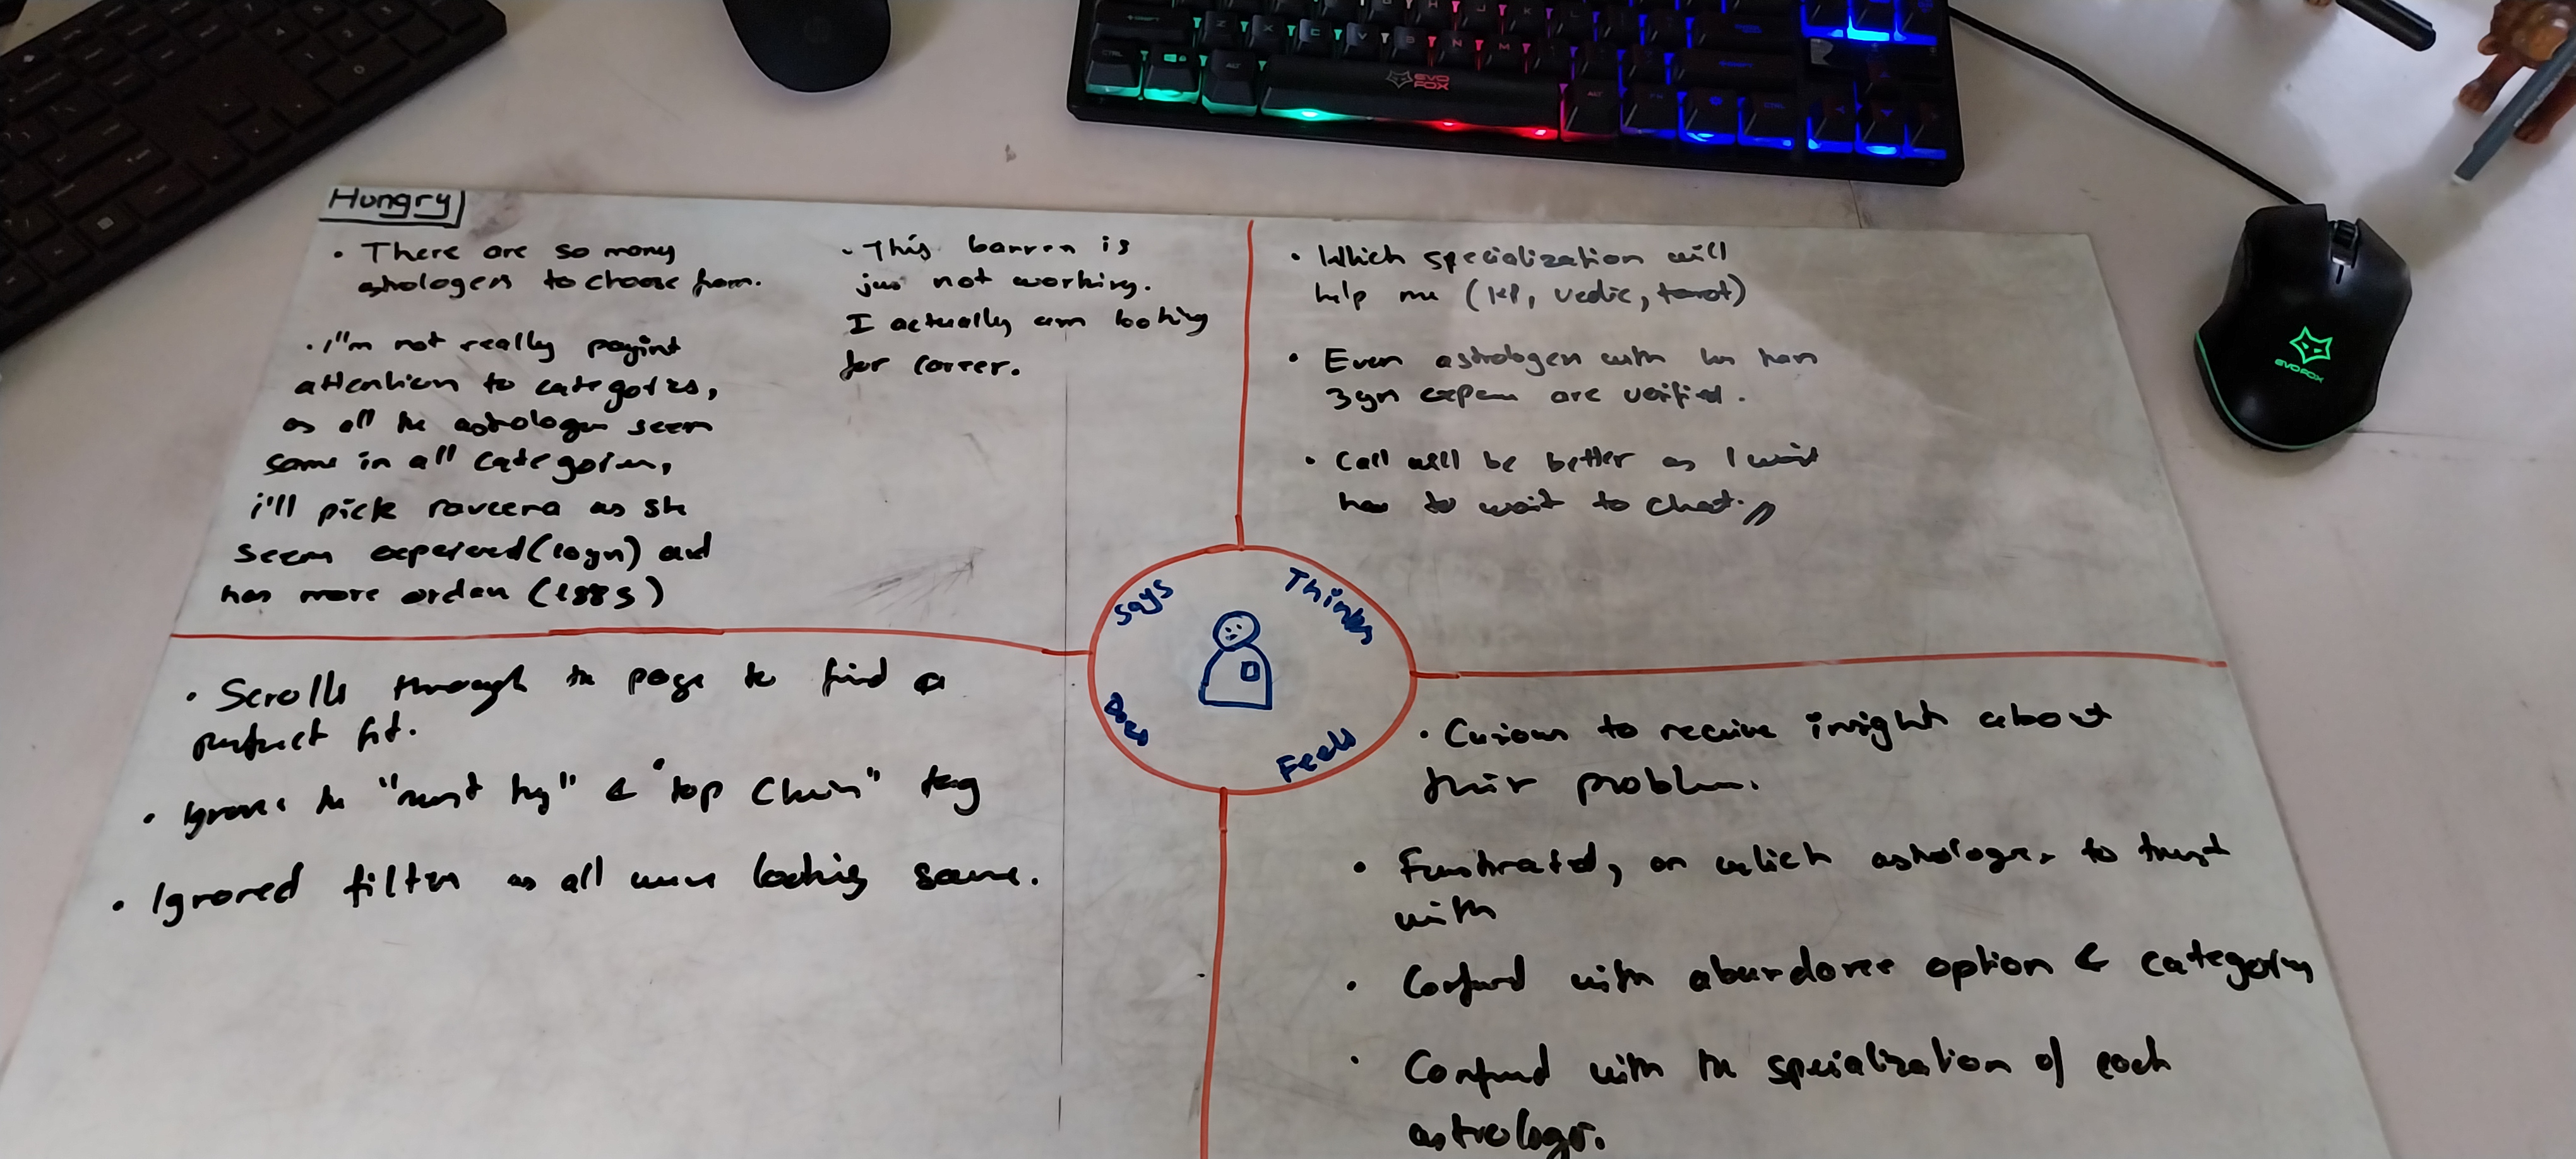 Hungry
• There are so many
astrologers to choose from.
• I'm not really payint
attention to categories,
as all the astrologer seem
same in all categories,
i'll pick raveena as she
seem experienced (10yr) and
has more orders
• This banner is
jus not working.
I actually am looking
for career.
• Which specialization will
help me (KP, vedic, tarot)
• Even astrologers with
3yrs are verified.
• Call will be better as I
to wait to chat.
Says
Thinks
Does
Feels
• Scrolls through the page to find a
perfect fit.
• Ignores the "must try" & "top Choice" tag
• Ignored filter as all were looking same.
• Curious to receive insight about
their problem.
• Frustrated, on which astrologer to trust
with
• Confused with abundance option & categories
• Confused with the specialization of each
astrologer.
EVO
FOX
EVOFOX
CTRL
ALT